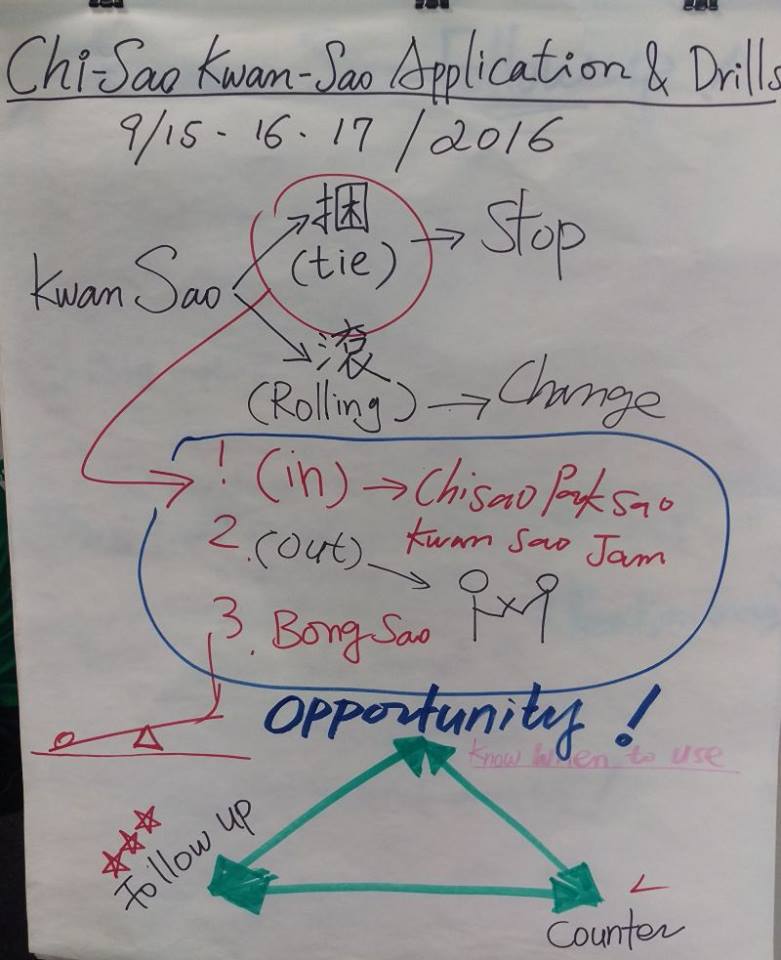 Chi-Sao Kwan-Sao Application & Drills
9/15 - 16 - 17 / 2016
捆
(tie) → Stop
Kwan Sao
滾
(Rolling) → Change
1 (in) → Chisao Pak Sao
Kwan Sao Jam
2. (out) →
3. Bong Sao
Opportunity!
Know When to use
Follow up
Counter